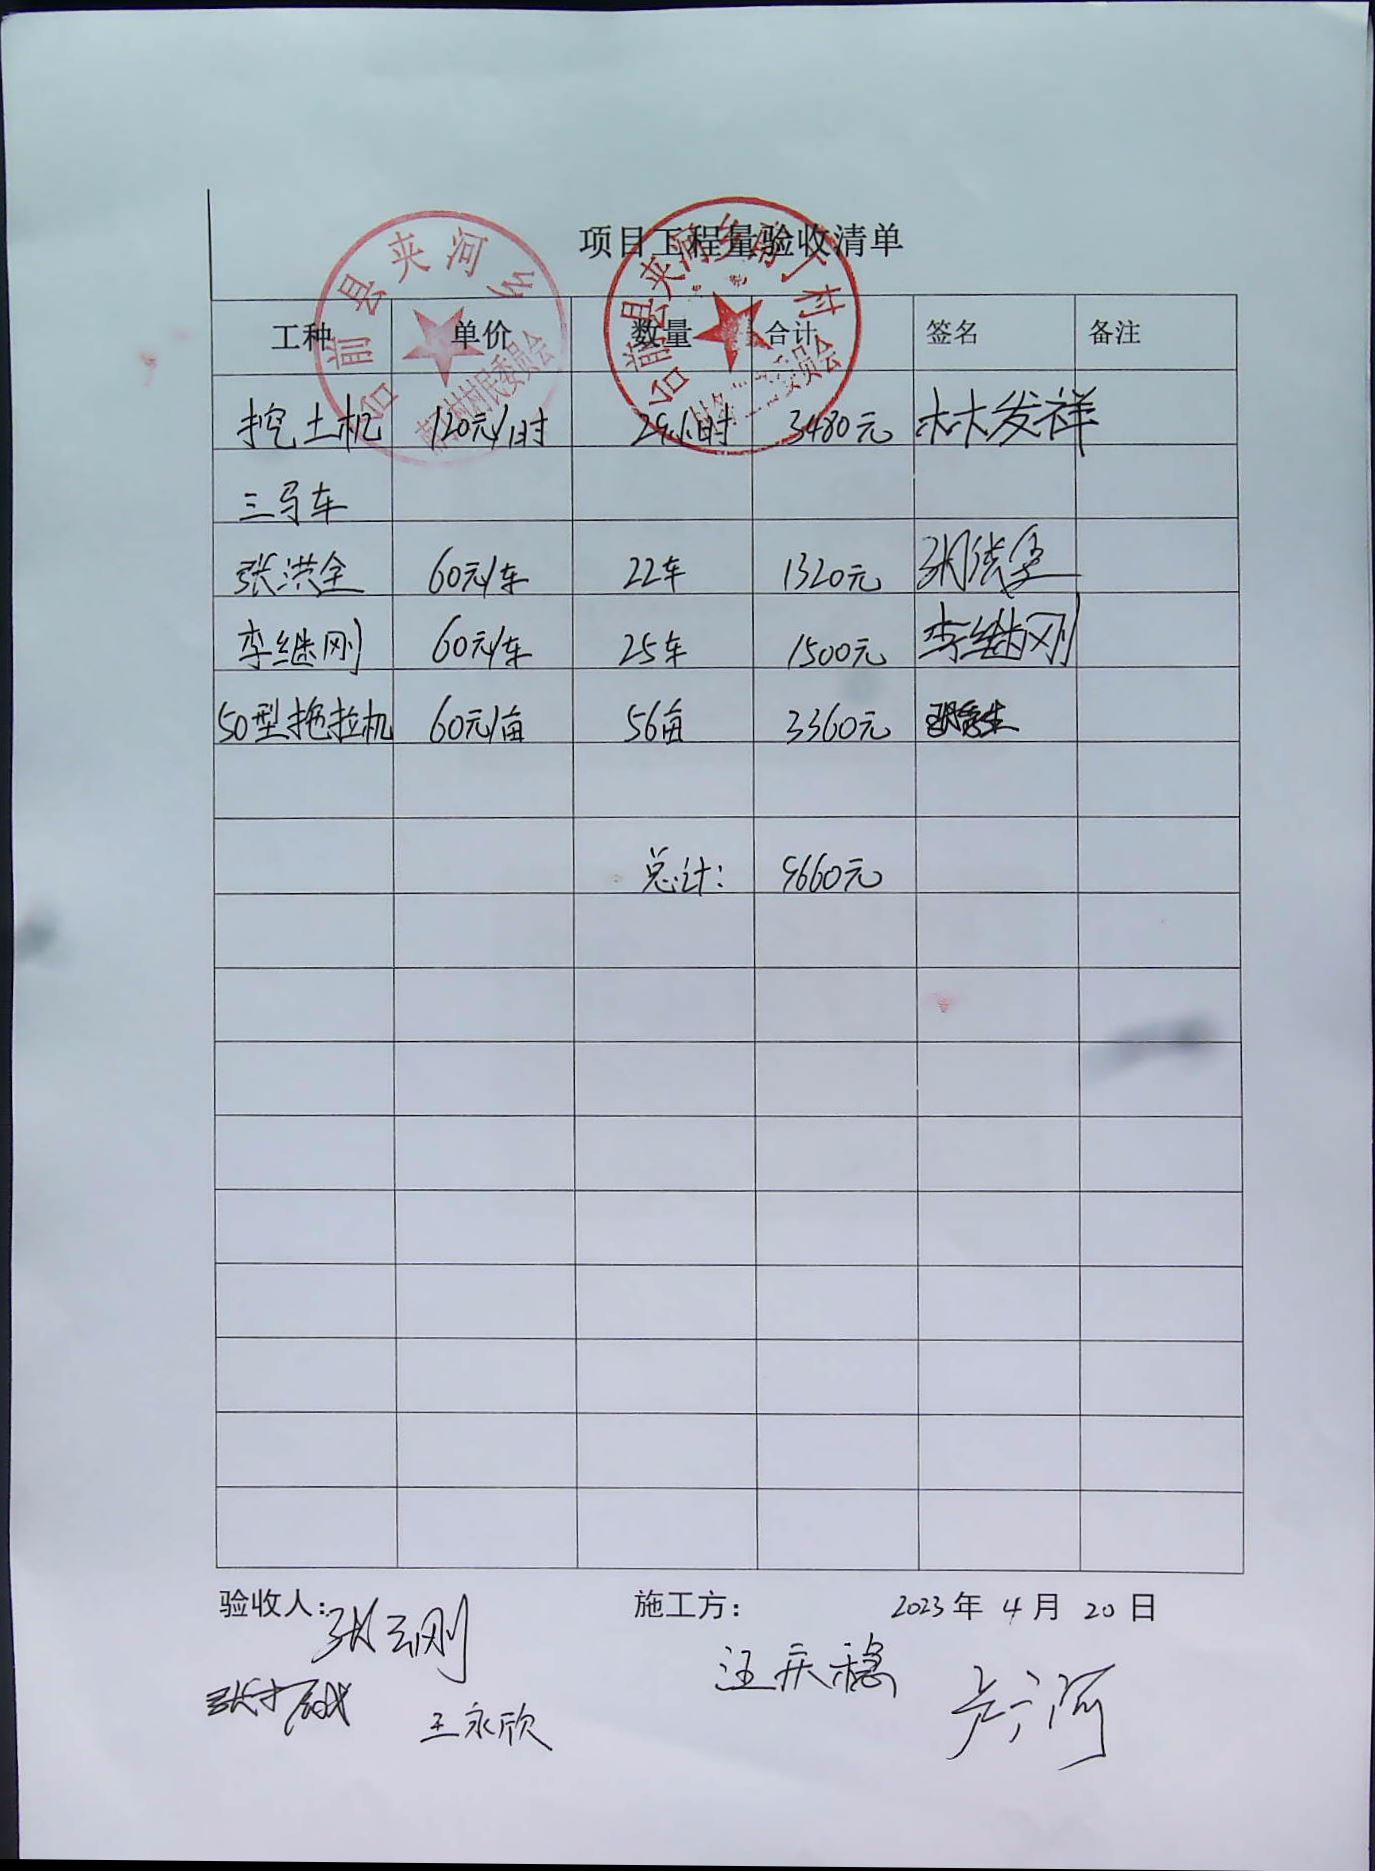 项目工程量验收清单
台前县夹河乡
村民委员会
台前县夹河乡前丁村
村务监督委员会
工种 单价 数量 合计 签名 备注
挖土机 120元/时 29小时 3480元 林发祥
三马车
张洪全 60元/车 22车 1320元
李继刚 60元/车 25车 1500元 李继刚
50型拖拉机 60元/亩 56亩 3360元
总计: 9660元
验收人: 施工方: 2023年 4月 20日
张云刚
汪庆稳
王永欣